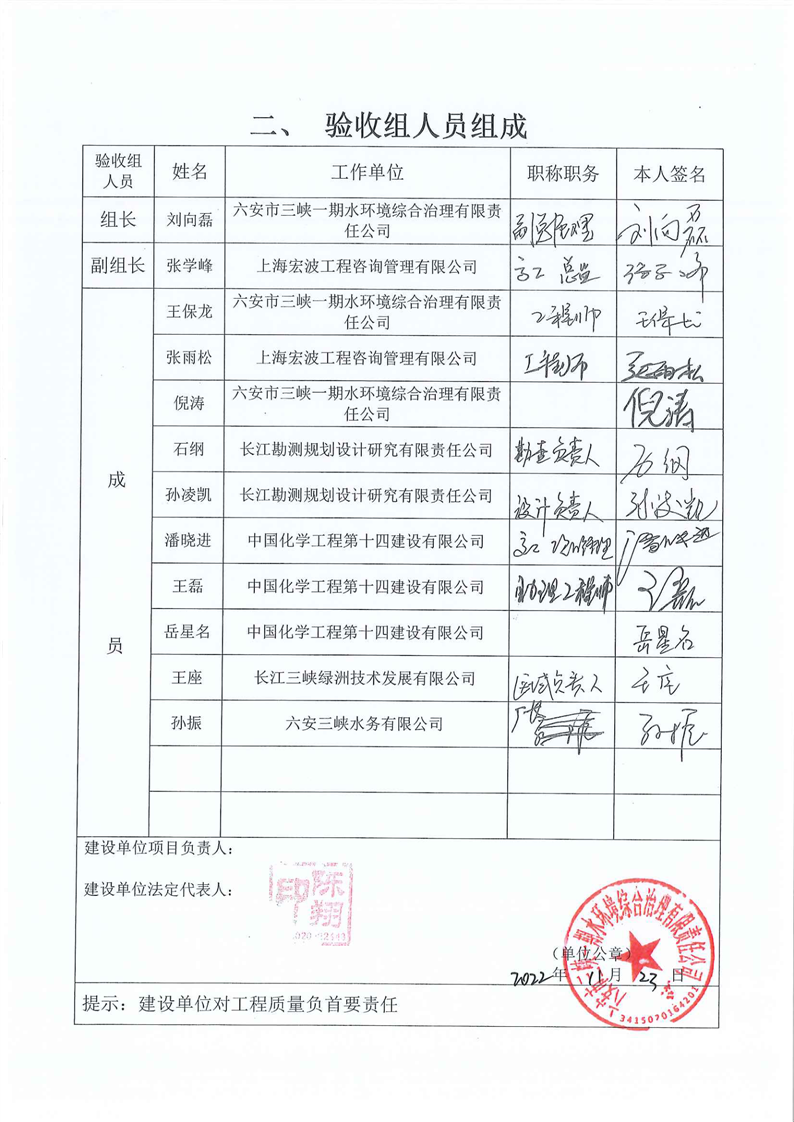 二、 验收组人员组成
验收组
人员
姓名
工作单位
职称职务
本人签名
组长
刘向磊
六安市三峡一期水环境综合治理有限责
任公司
副总经理
刘向磊
副组长
张学峰
上海宏波工程咨询管理有限公司
高工 总监
成
员
王保龙
六安市三峡一期水环境综合治理有限责
任公司
工程师
王保龙
张雨松
上海宏波工程咨询管理有限公司
工程师
张雨松
倪涛
六安市三峡一期水环境综合治理有限责
任公司
倪涛
石纲
长江勘测规划设计研究有限责任公司
勘查负责人
石纲
孙凌凯
长江勘测规划设计研究有限责任公司
设计负责人
孙凌凯
潘晓进
中国化学工程第十四建设有限公司
高工 项目经理
潘晓进
王磊
中国化学工程第十四建设有限公司
助理工程师
王磊
岳星名
中国化学工程第十四建设有限公司
岳星名
王座
长江三峡绿洲技术发展有限公司
区域负责人
王座
孙振
六安三峡水务有限公司
厂长
孙振
建设单位项目负责人：
建设单位法定代表人：
陈翔
印
（单位公章）
2022年 11月 23日
六安市三峡一期水环境综合治理有限责任公司
3415070164201
提示：建设单位对工程质量负首要责任